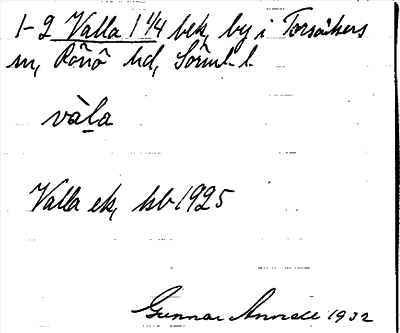 1-2 Valla 1 1/4 bek, by i Torsåkers
sn, Rönö hd, Sörml. l.
vàla
Valla ek, hb 1925
Gunnar 1932